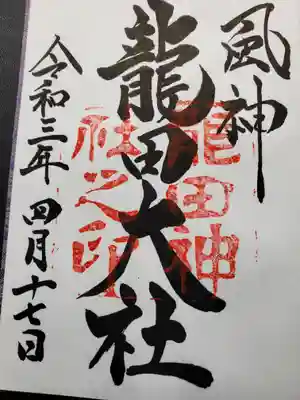 風神
龍田大社
龍田神
社之印
令和三年 四月十七日